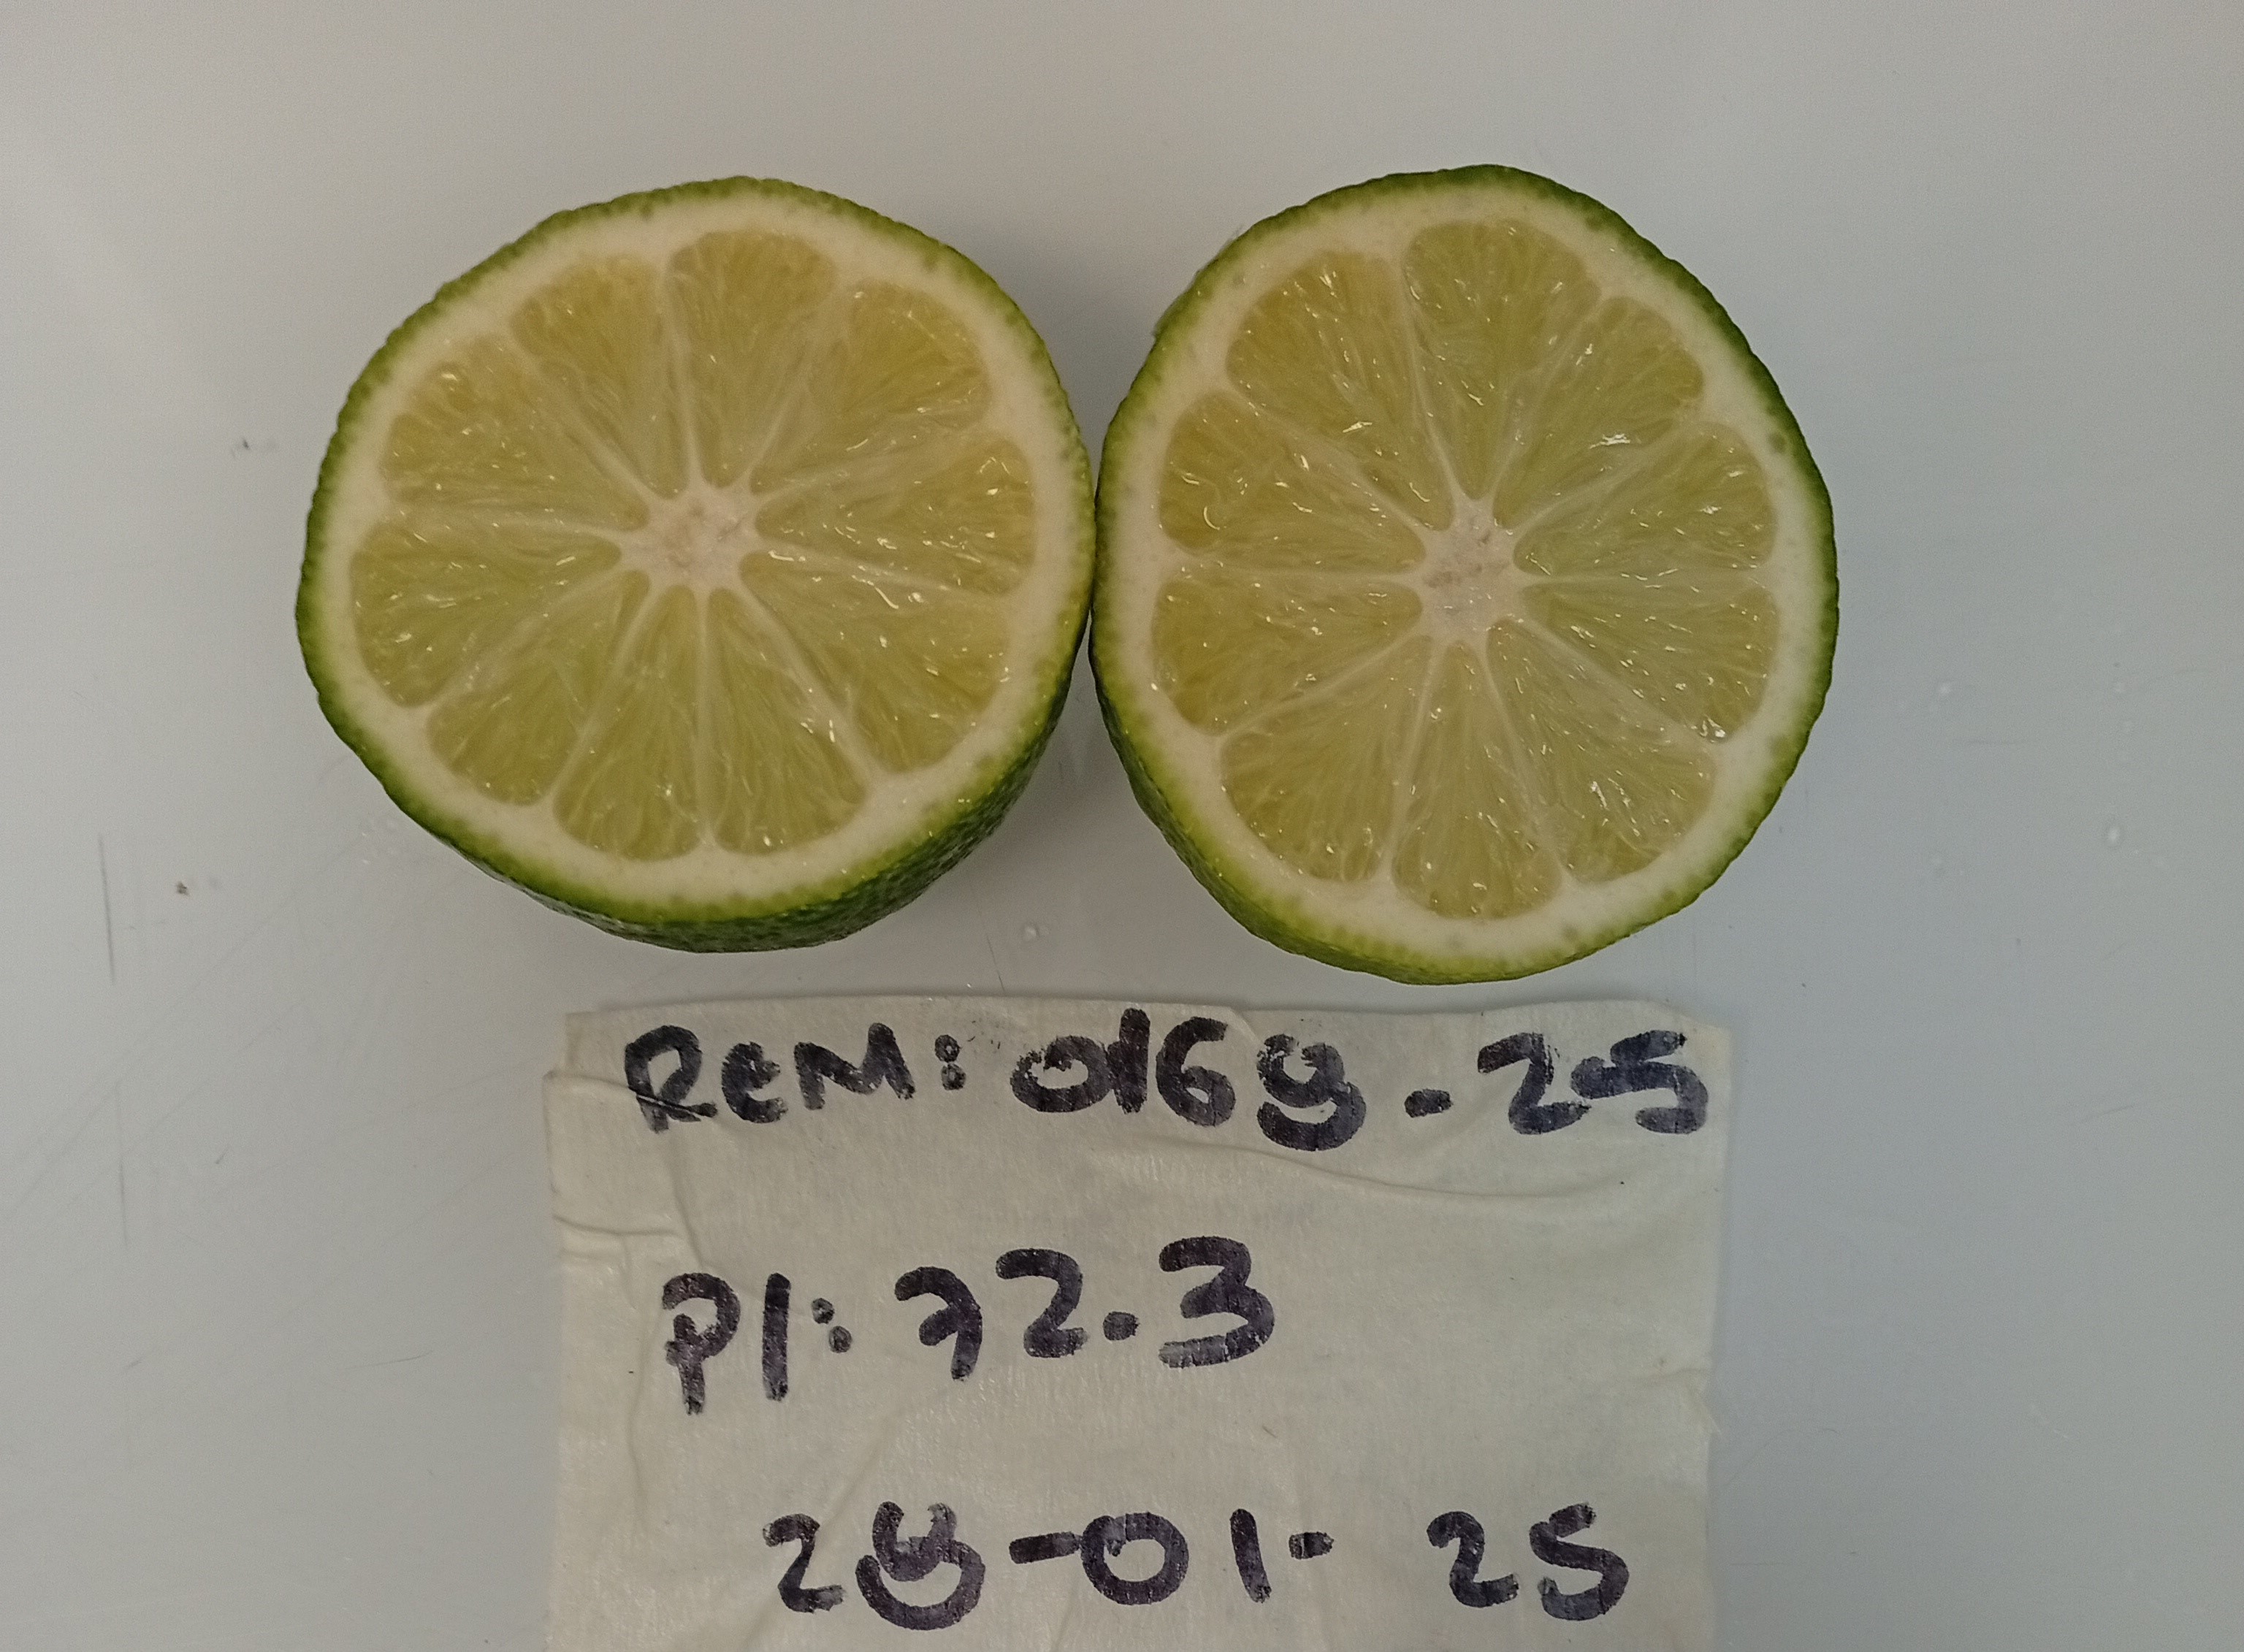 REM: 0169-25
PI: 72.3
28-01-25